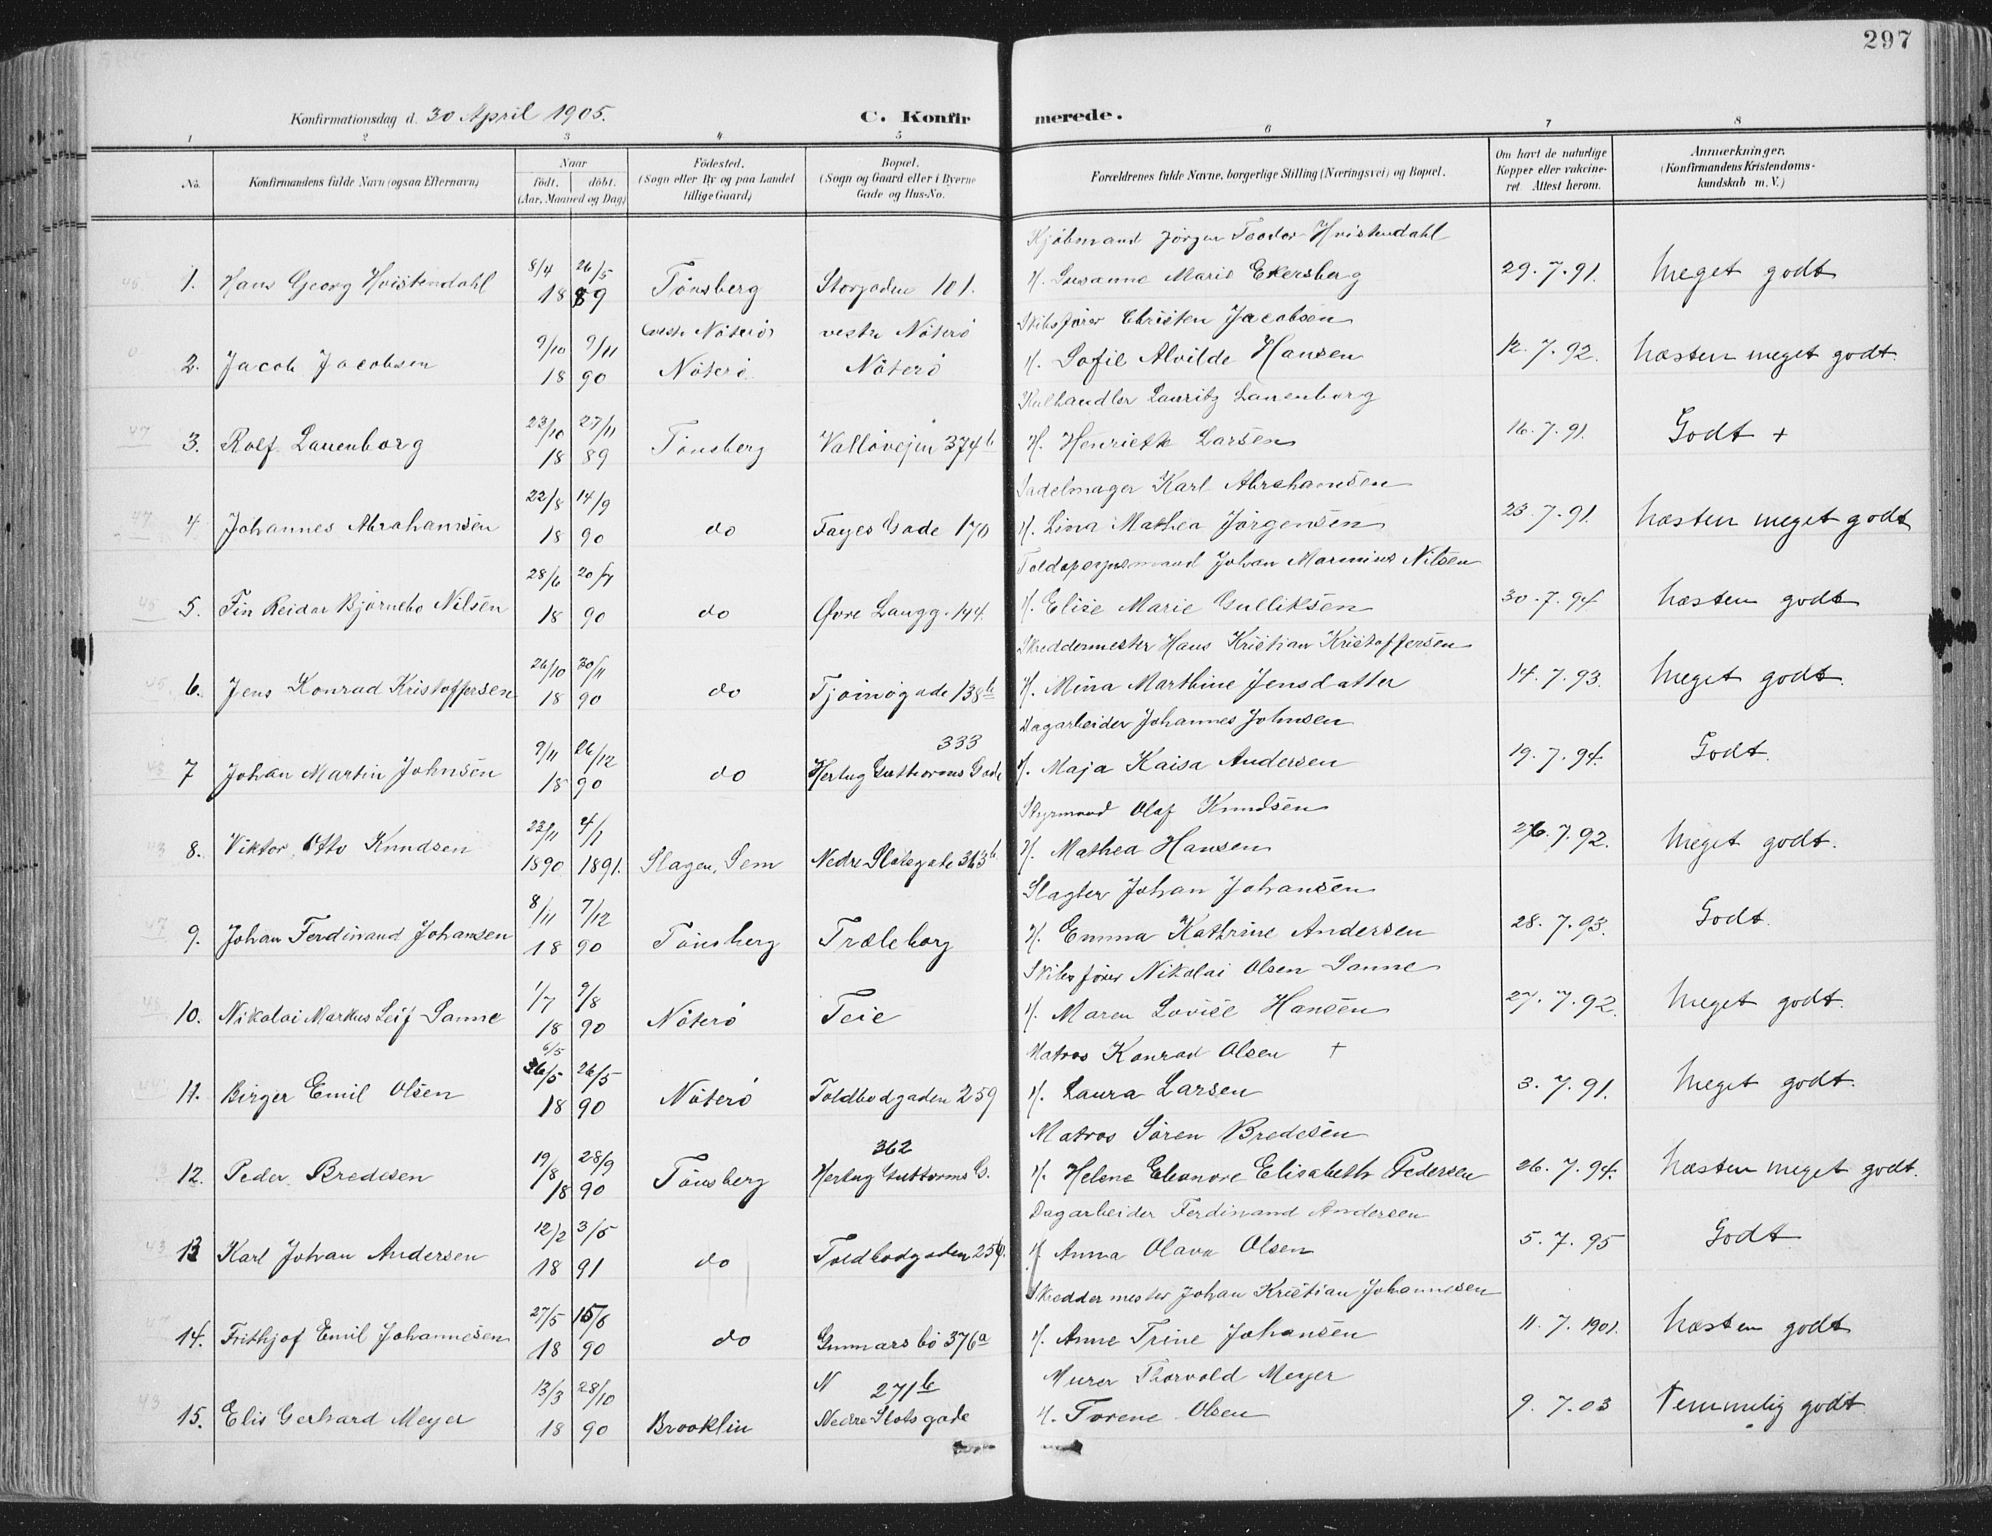 297
Konfirmationsdag d. 30 April 1905.
C. Konfirmerede.
1 2 3 4 5 6 7 8
No. Konfirmandens fulde Navn (ogsaa Efternavn)
Naar født. døbt. (Aar, Maaned og Dag)
Fødested. (Sogn eller By og paa Landet tillige Gaard)
Bopæl. (Sogn og Gaard eller i Byerne Gade og Hus-No.
Forældrenes fulde Navne, borgerlige Stilling (Næringsvei) og Bopæl.
Om havt de naturlige Kopper eller vakcineret. Attest herom.
Anmærkninger. (Konfirmandens Kristendomskundskab m. V.)
Kjøbmand Jørgen Teodor Hvistendahl
1. Hans Georg Hvistendahl 8/4 26/5 1889 Tønsberg Storgaden 101. H. Susanne Marie Ekersberg 29.7.91. Meget godt
Skibsfører Christen Jacobsen
2. Jacob Jacobsen 9/10 9/11 1890 vestre Nøterø Nøterø vestre Nøterø Nøterø H. Sofie Alvilde Hansen 12.7.92. Næsten meget godt.
Kulhandler Lauritz Lauenborg
3. Rolf Lauenborg 23/10 27/11 1889 Tønsberg Valløvejen 374b H. Henriette Larsen 16.7.91. Godt +
Sadelmager Karl Abrahamsen
4 Johannes Abrahamsen 22/8 14/9 1890 do Fayes Gade 170 H. Lina Mathea Jørgensen 23.7.91. Næsten meget godt
Toldopsynsmand Johan Marinius Nilsen
5. Fin Reidar Bjørnebo Nilsen 28/6 20/7 1890 do Øvre Langg. 144. H. Elise Marie Gulliksen 30.7.94 Næsten godt
Skreddermester Hans Kristian Kristoffersen
6. Jens Konrad Kristoffersen 26/10 30/11 1890 do Tjømøgade 138b H. Mina Marthine Jensdatter 14.7.93. Meget godt.
Dagarbeider Johannes Johnsen
7 Johan Martin Johnsen 9/11 26/12 1890 do 333 Hertug Guthorms Gade H. Maja Kaisa Andersen 19.7.94. Godt.
Styrmand Olaf Knudsen
8. Viktor Otto Knudsen 23/11 1890 4/1 1891. Slagen, Sem Nedre Slotsgade 363b H. Mathea Hansen 26.7.92. Meget godt.
Slagter Johan Johansen
9. Johan Ferdinand Johansen 8/11 7/12 1890 Tønsberg Træleborg H. Emma Kathrine Andersen 28.7.93. Godt
Skibsfører Nikolai Olsen Sanne
10. Nikolai Markus Leif Sanne 1/7 9/8 1890 Nøterø Teie H. Maren Lovise Hansen 27.7.92. Meget godt.
Matros Konrad Olsen +
11. Birger Emil Olsen 6/5 26/5 26/5 1890 Nøterø Toldbodgaden 259 H. Laura Larsen 3.7.91. Meget godt.
Matros Søren Bredesen
12. Peder Bredesen 19/8 28/9 1890 Tønsberg 362 Hertug Guttorms G. H. Helene Eleonore Elisabeth Pedersen 26.7.94. Næsten meget godt.
Dagarbeider Ferdinand Andersen
13 Karl Johan Andersen 12/2 3/5 1891 do Toldbodgaden 259. H Anna Olava Olsen 5.7.95 Godt
Skreddermester Johan Kristian Johannesen
14. Frithjof Emil Johannesen 27/5 15/6 1890 do Gunnarsbø 376a H. Anne Trine Johansen 11.7.1901. Næsten godt
Murer Thorvald Meyer
15. Elis Gerhard Meyer 13/3 28/10 1890 Brooklin N 271b Nedre Slotsgade H. Torene Olsen 9.7.03 Temmelig godt